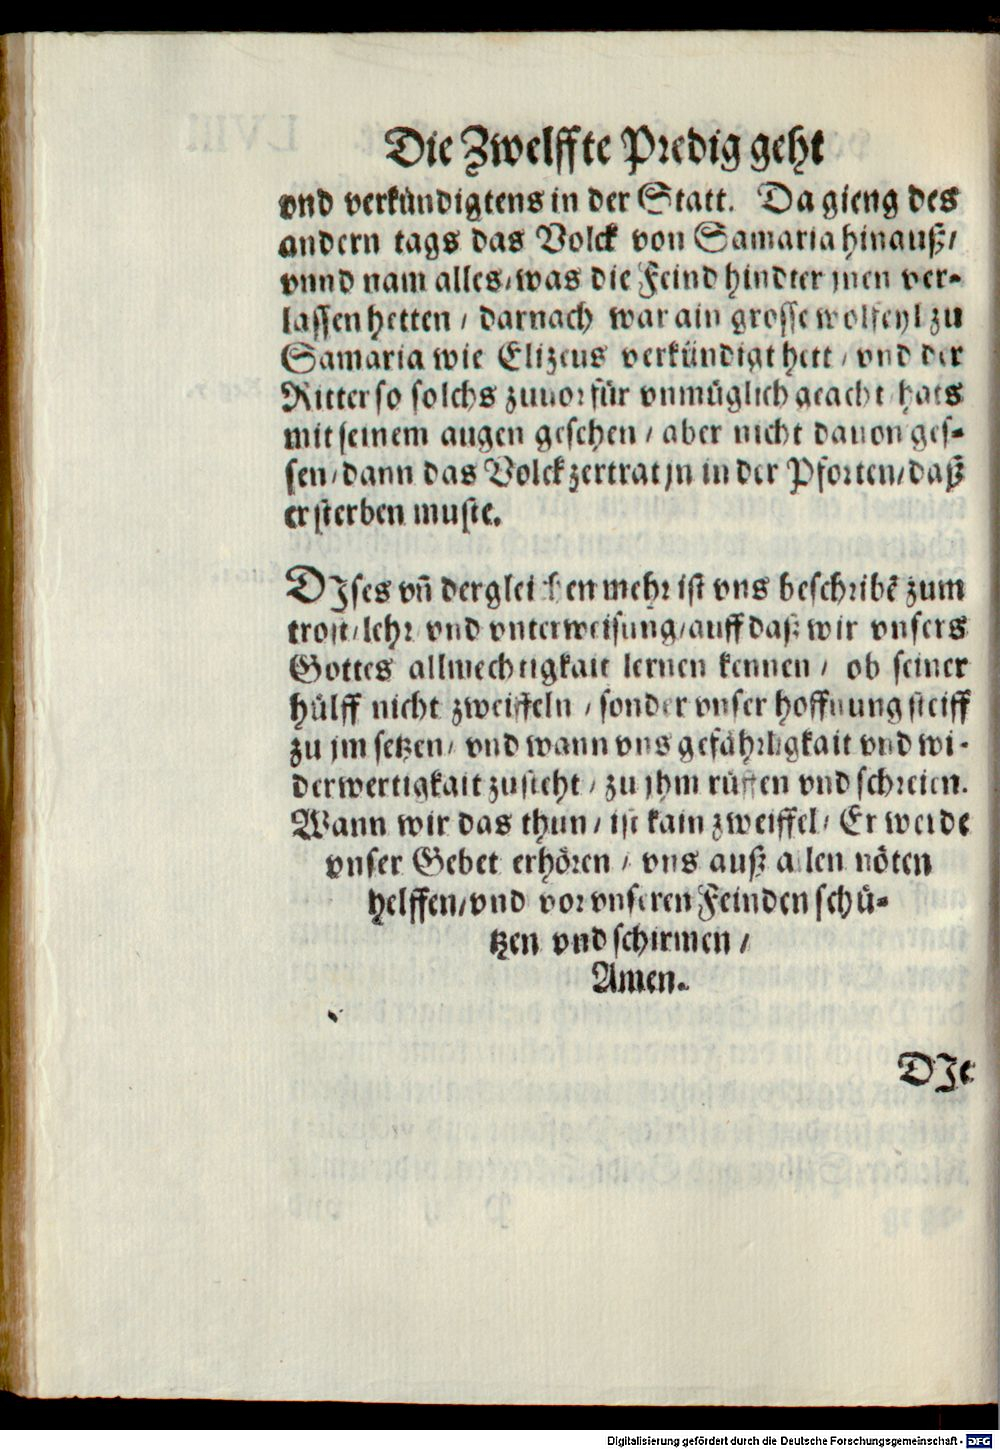 Die Zwelffte Predig geht
vnd verkündigtens in der Statt. Da gieng des
andern tags das Volck von Samaria hinauß/
vnnd nam alles/ was die Feind hindter jnen ver-
lassen hetten / darnach war ain grosse wolfeyl zu
Samaria wie Elizeus verkündigt hett / vnd der
Ritter so solchs zuuor für vnmüglich geacht hats
mit seinem augen gesehen / aber nicht dauon ges-
sen/ dann das Volck zertrat jn in der Pforten/ daß
er sterben muste.
DIses vñ dergleichen mehr ist vns beschribẽ zum
trost/ lehr vnd vnterweisung/ auff daß wir vnsers
Gottes allmechtigkait lernen kennen / ob seiner
hülff nicht zweiffeln / sonder vnser hoffnung steiff
zu jm setzen/ vnd wann vns gefährligkait vnd wi-
derwertigkait zusteht / zu jhm rüffen vnd schreien.
Wann wir das thun / ist kain zweiffel/ Er werde
vnser Gebet erhören / vns auß allen nöten
helffen/ vnd vor vnseren Feinden schü-
tzen vnd schirmen /
Amen.
DIe
Digitalisierung gefördert durch die Deutsche Forschungsgemeinschaft - DFG